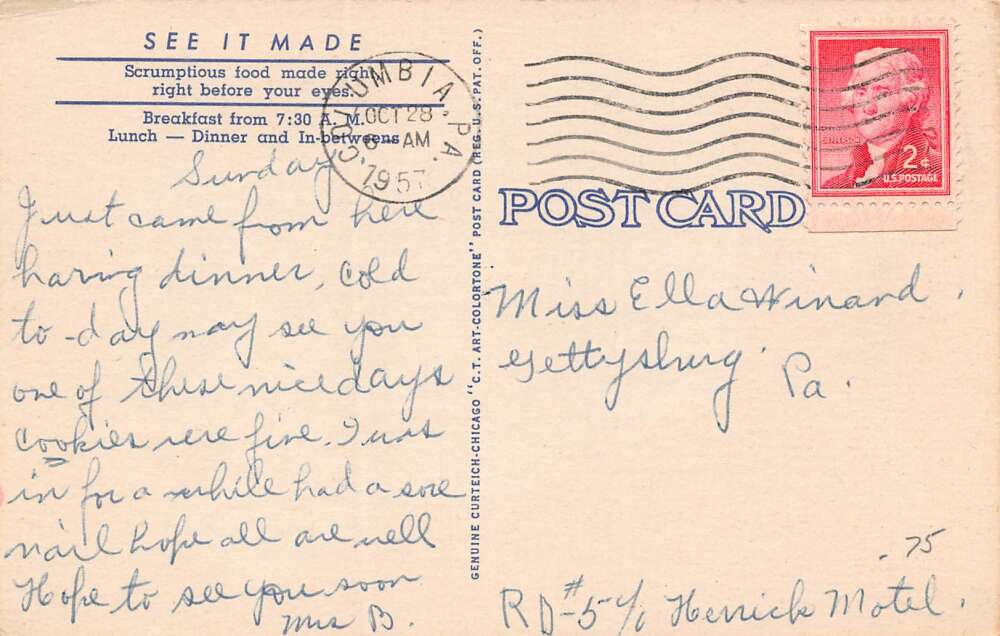 SEE IT MADE
Scrumptious food made right
right before your eyes.
Breakfast from 7:30 A. M.
Lunch — Dinner and In-betweens
Sunday
Just came from here
having dinner, cold
to-day may see you
one of these nice days
cookies were fine. I was
in for a while had a sore
nail hope all are well
Hope to see you soon
Mrs B.
GENUINE CURTEICH-CHICAGO "C.T. ART-COLORTONE" POST CARD (REG. U.S. PAT. OFF.)
COLUMBIA, PA.
OCT 28
AM
1957
JEFFERSON
2¢
U.S. POSTAGE
POST CARD
Miss Ella Winand.
Gettysburg
Pa.
.75
RD #5 c/o Herrick Motel.